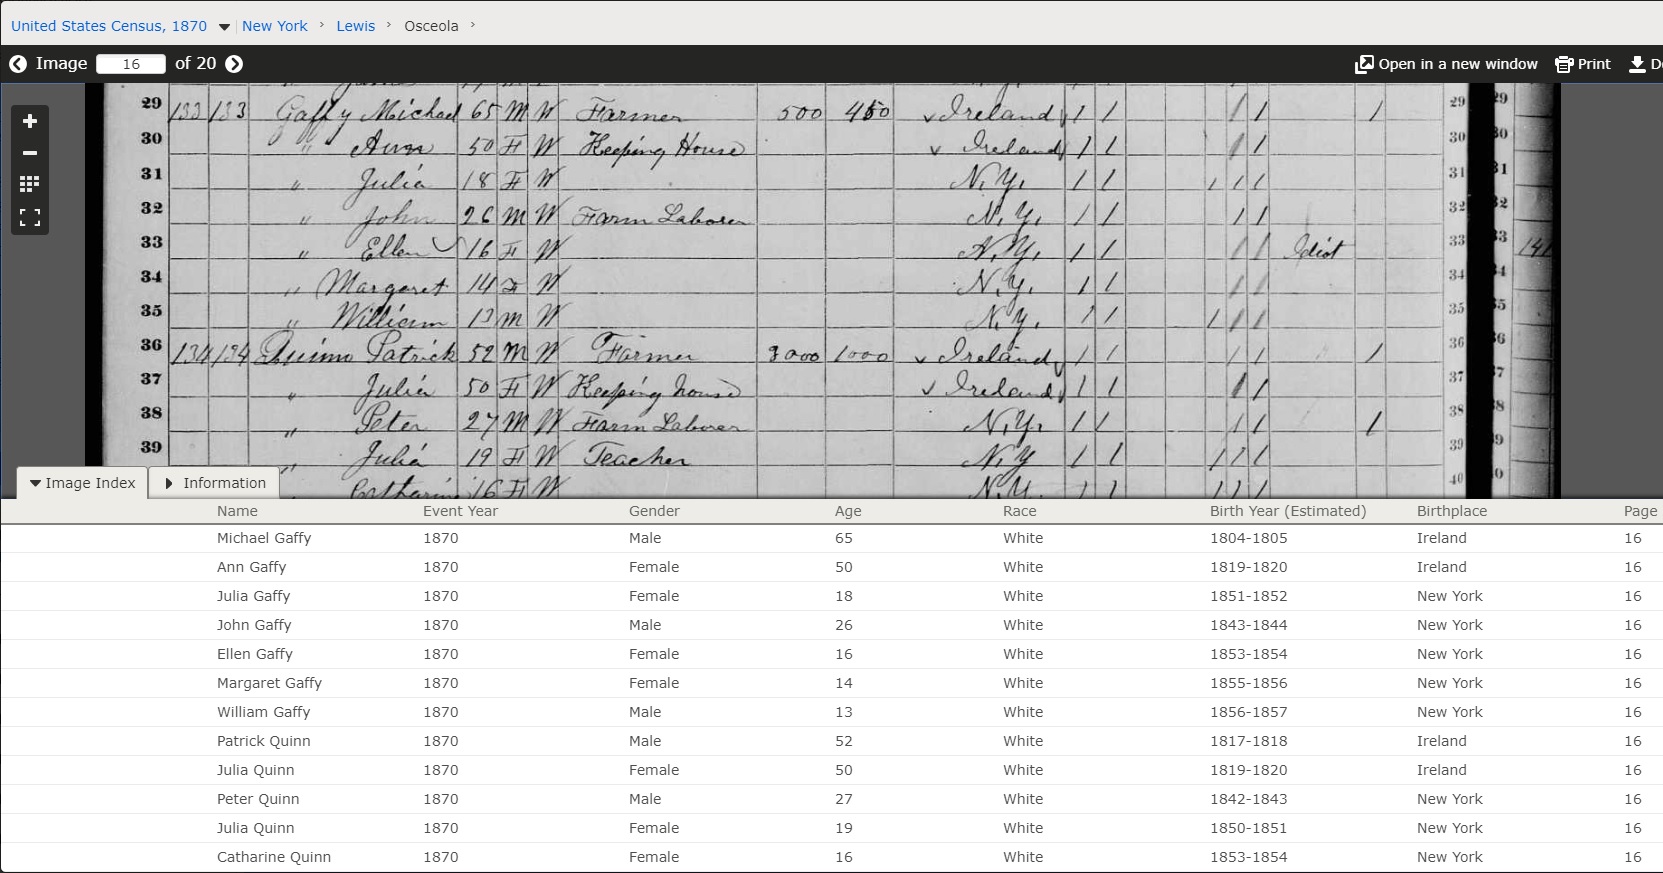 United States Census, 1870 New York › Lewis › Osceola ›
Image 16 of 20 Open in a new window Print
29 133 133 Gaffy Michael 65 M W Farmer 500 450 Ireland 1 1 1 1 1 29 29
30 " Ann 50 F W Keeping House Ireland 1 1 1 1 30 30
31 " Julia 18 F W N.Y. 1 1 1 1 1 31 31
32 " John 26 M W Farm Laborer N.Y. 1 1 1 1 32 32
33 " Ellen 16 F W N.Y. 1 1 1 1 Idiot 33 33 141
34 " Margaret 14 F W N.Y. 1 1 1 1 34 34
35 " William 13 M W N.Y. 1 1 1 1 1 35 35
36 134 134 Patrick 52 M W Farmer 3000 1000 Ireland 1 1 1 1 1 36 36
37 " Julia 50 F W Keeping house Ireland 1 1 1 1 37 37
38 " Peter 27 M W Farm Laborer N.Y. 1 1 1 1 1 38 38
39 " Julia 19 F W Teacher N.Y 1 1 1 1 1 39 39
Catharine 16 F W N.Y. 1 1 1 1 1 40 40
Image Index Information
Name Event Year Gender Age Race Birth Year (Estimated) Birthplace Page
Michael Gaffy 1870 Male 65 White 1804-1805 Ireland 16
Ann Gaffy 1870 Female 50 White 1819-1820 Ireland 16
Julia Gaffy 1870 Female 18 White 1851-1852 New York 16
John Gaffy 1870 Male 26 White 1843-1844 New York 16
Ellen Gaffy 1870 Female 16 White 1853-1854 New York 16
Margaret Gaffy 1870 Female 14 White 1855-1856 New York 16
William Gaffy 1870 Male 13 White 1856-1857 New York 16
Patrick Quinn 1870 Male 52 White 1817-1818 Ireland 16
Julia Quinn 1870 Female 50 White 1819-1820 Ireland 16
Peter Quinn 1870 Male 27 White 1842-1843 New York 16
Julia Quinn 1870 Female 19 White 1850-1851 New York 16
Catharine Quinn 1870 Female 16 White 1853-1854 New York 16